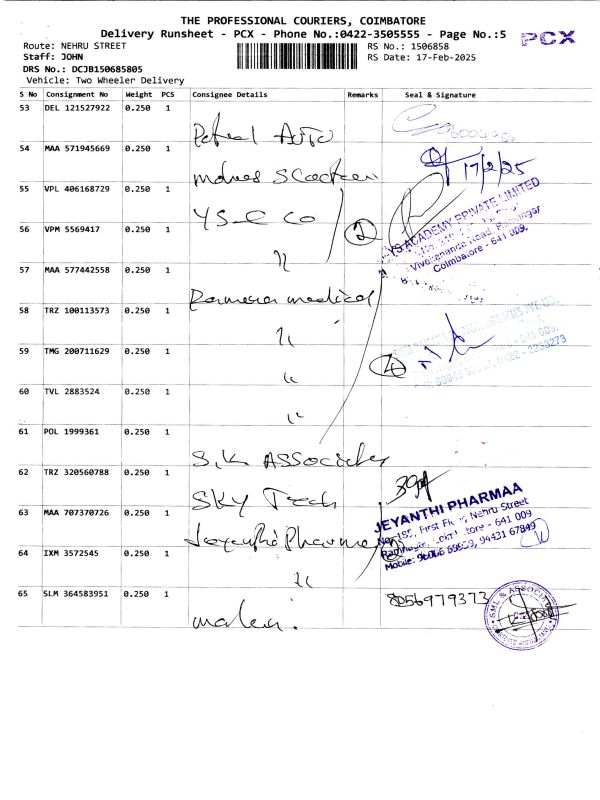 THE PROFESSIONAL COURIERS, COIMBATORE
Delivery Runsheet - PCX - Phone No.:0422-3505555 - Page No.:5
PCX
Route: NEHRU STREET
RS No.: 1506858
Staff: JOHN
RS Date: 17-Feb-2025
DRS No.: DCJB150685805
Vehicle: Two Wheeler Delivery
S No Consignment No Weight PCS Consignee Details Remarks Seal & Signature
53 DEL 121527922 0.250 1 Auto
54 MAA 571945669 0.250 1
17/2/25
55 VPL 406168729 0.250 1 YSC Co
2
YS ACADEMY PRIVATE LIMITED
Vivekananda Road,
Coimbatore - 641 009.
56 VPM 5569417 0.250 1 "
57 MAA 577442558 0.250 1 medical
58 TRZ 100113573 0.250 1 "
59 TMG 200711629 0.250 1 "
4
60 TVL 2883524 0.250 1 "
61 POL 1999361 0.250 1 S.K. Associates
62 TRZ 320560788 0.250 1 SKY Tech
JEYANTHI PHARMAA
First Nehru Street
641 009
Mobile: 94431 67849
63 MAA 707370726 0.250 1 Jeyanthi Pharma
64 IXM 3572545 0.250 1 "
65 SLM 364583951 0.250 1
8056979373